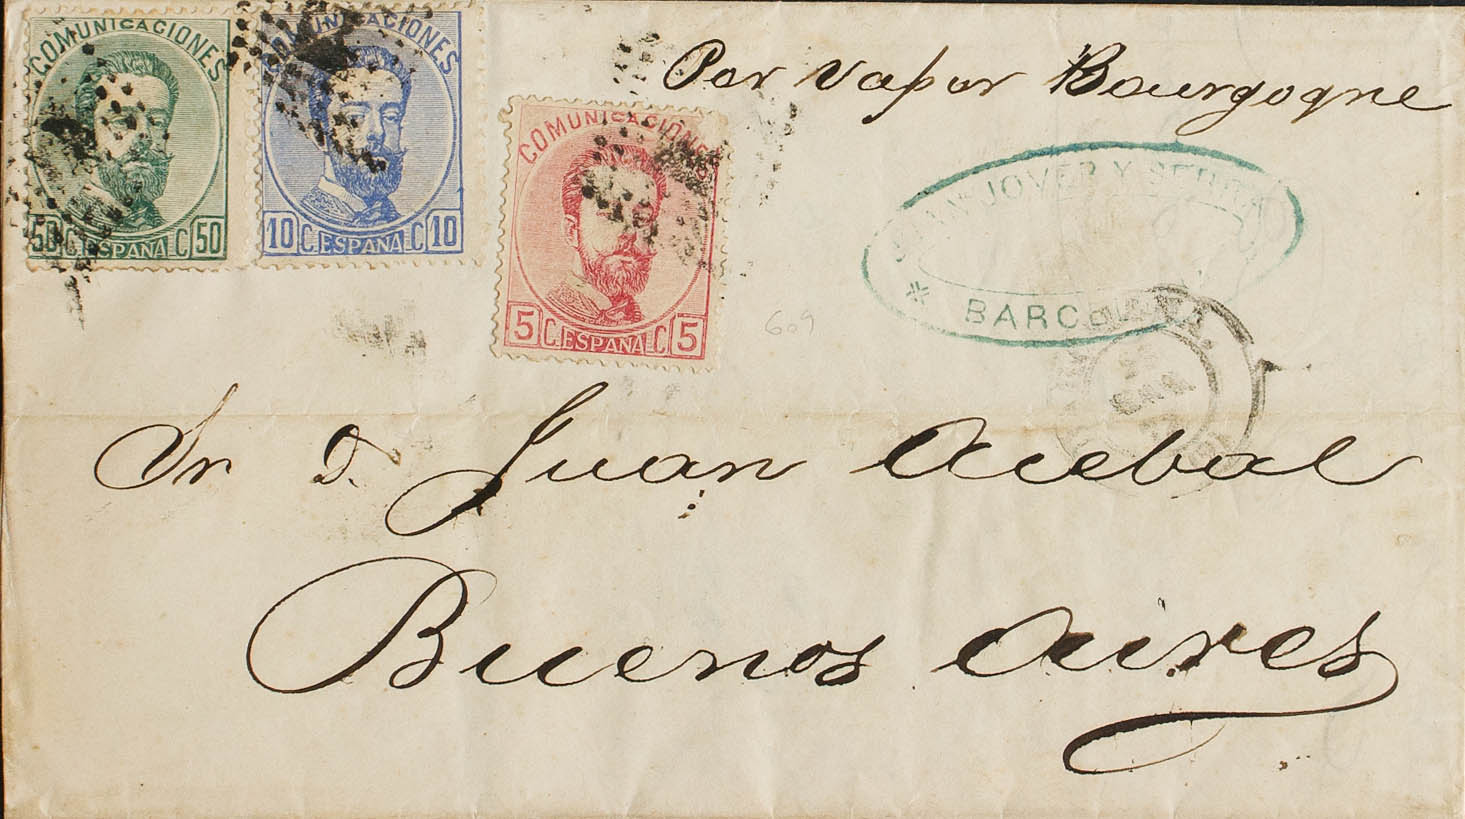 COMUNICACIONES
50 C. ESPAÑA C 50
COMUNICACIONES
10 C. ESPAÑA C 10
COMUNICACIONES
5 C. ESPAÑA C 5
Por vapor Bourgogne
JUAN JOVER Y SERRA
BARCELONA
609
Sr D. Juan Acebal
Buenos Aires